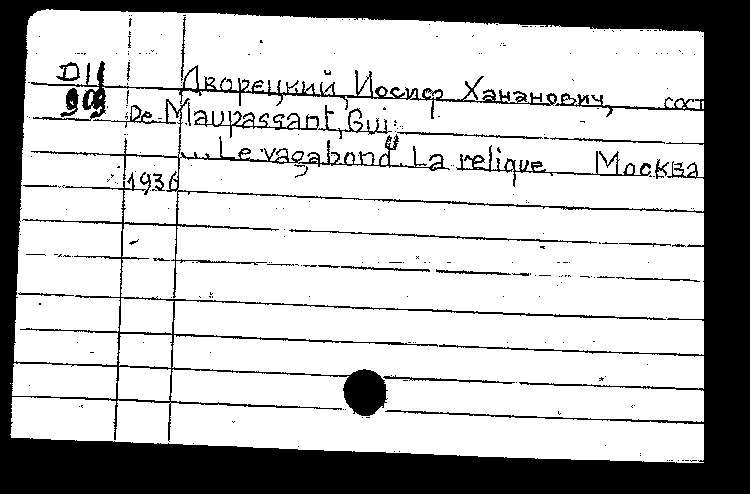 D11 Дворецкий, Иосиф Хананович, сост
909 De Maupassant, Guy
... Le vagabond. La relique. Москва
1936